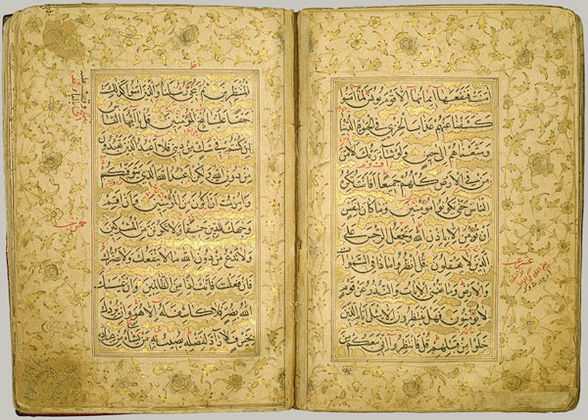 اٰمنت فنفعها ايمانها الا قوم يونس لما اٰمنوا
كشفنا عنهم عذاب الخزي في الحيوة الدنيا
ومتعناهم الى حين ولو شاء ربك لاٰمن
من في الارض كلهم جميعا افانت تكره
الناس حتى يكونوا مؤمنين وما كان لنفس
ان تؤمن الا باذن الله ويجعل الرجس على
الذين لا يعقلون قل انظروا ماذا في السموات
والارض وما تغني الايات والنذر عن قوم
لا يؤمنون فهل ينتظرون الا مثل ايام الذين
خلوا من قبلهم قل فانتظروا اني معكم من
المنتظرين ثم ننجي رسلنا والذين اٰمنوا كذلك
حقا علينا ننج المؤمنين قل يا ايها الناس
ان كنتم في شك من ديني فلا اعبد الذين تعبدون
من دون الله ولكن اعبد الله الذي يتوفيكم
وامرت ان اكون من المؤمنين وان اقم
وجهك للدين حنيفا ولا تكونن من المشركين
ولا تدع من دون الله ما لا ينفعك ولا يضرك
فان فعلت فانك اذا من الظالمين وان يمسسك
الله بضر فلا كاشف له الا هو وان يردك
بخير فلا راد لفضله يصيب به من يشاء من عباده